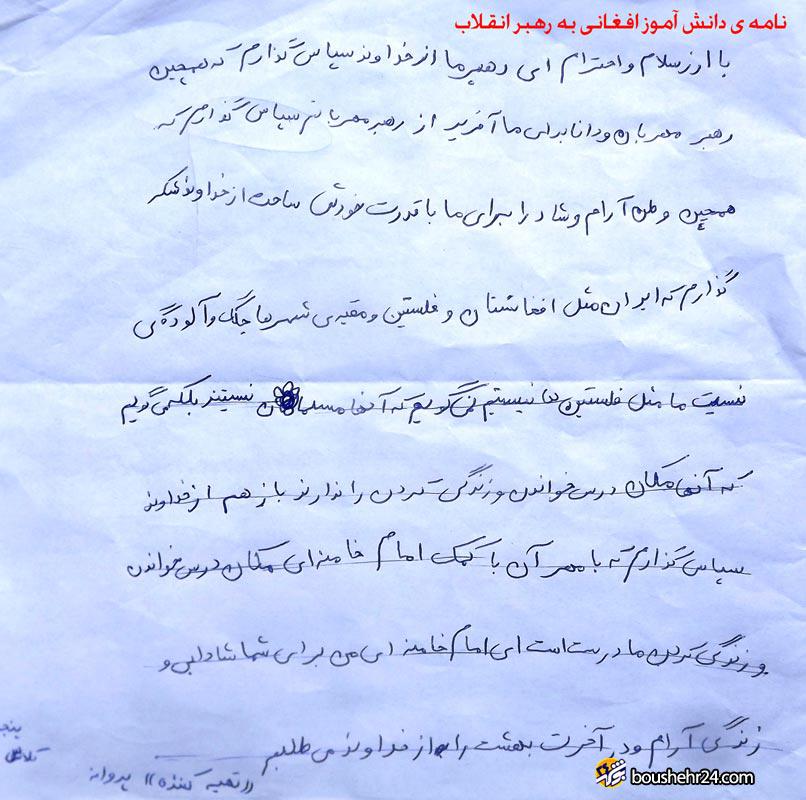 نامه ی دانش آموز افغانی به رهبر انقلاب
با ارز سلام و احترام ای رهبر ما از خداوند سپاس گذارم که همچین
رهبر مهربان و دانا برای ما آفرید از رهبر مهربانم سپاس گذارم که
همچین وطن آرام و شاد را برای ما با قدرت خودش ساخت از خداوند شکر
گذارم که ایران مثل افغانستان و فلستین و مقیه ی شهرها جنگ و آلوده گی
نسیت ما مثل فلستین ها نیستیم نمی گویم که آنها مسلمان نسیتند بلکه می گویم
که آنها مکان درس خواندن و زندگی کردن را ندارند باز هم از خداوند
سپاس گذارم که با مهر آن با کمک امام خامنه ای مکان درس خواندن
و زندگی کردن ما درست است ای امام خامنه ای من برای شما شادابی و
زندگی آرام و در آخرت بهشت را از خداوند می طلبم
((تهیه کننده)) پروانه
پنجم
کلاس
boushehr24.com